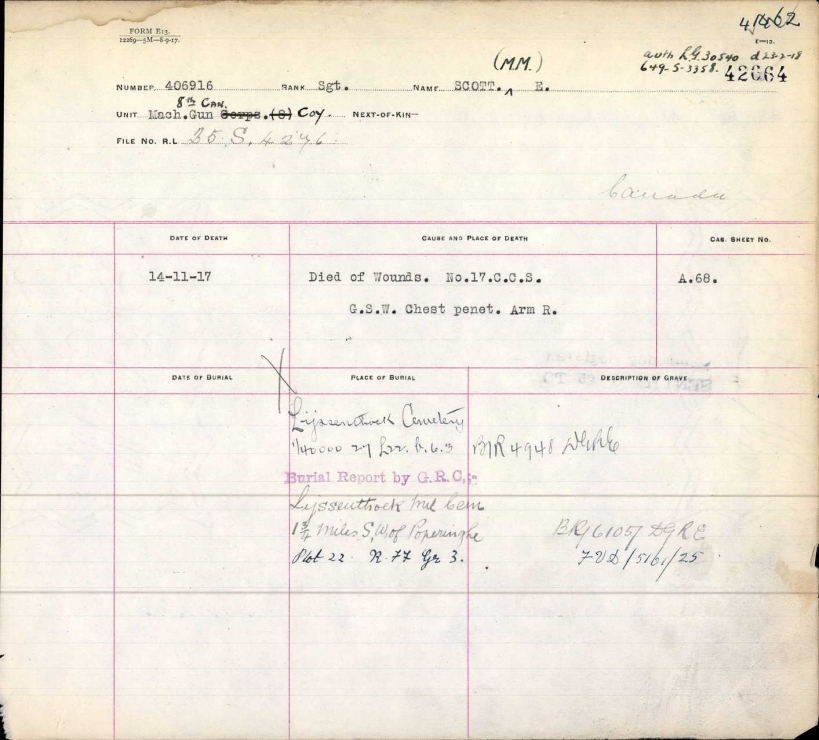 FORM E13.
12269—5M—8-9-17.
E—13.
auth L.G. 30540 d 23-2-18
649-5-3358. 42664
(M.M.)
NUMBER 406916 RANK Sgt. NAME SCOTT. ^ E.
8th CAN.
UNIT Mach.Gun Corps.(S) Coy. NEXT-OF-KIN—
FILE NO. R.L. 25 S. 4276
Canada
DATE OF DEATH CAUSE AND PLACE OF DEATH CAS. SHEET NO.
14-11-17 Died of Wounds. No.17.C.C.S. A.68.
G.S.W. Chest penet. Arm R.
DATE OF BURIAL PLACE OF BURIAL DESCRIPTION OF GRAVE
Lijssenthoek Cemetery
1/40000 27 L22. b.6.3 B/R 4948 DGRE
Burial Report by G.R.C.;-
Lijssenthoek Mil Cem
1¾ Miles S.W of Poperinghe BR/6105/DGRE
Plot 22 R. FF Gr 3. FVD/5161/25